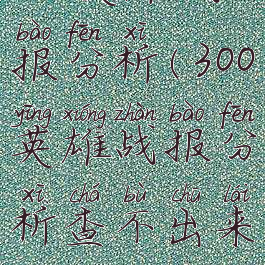 bào fēn xī
报分析(300
yīng xióng zhàn bào fēn
英雄战报分
xī chá bù chū lái
析查不出来